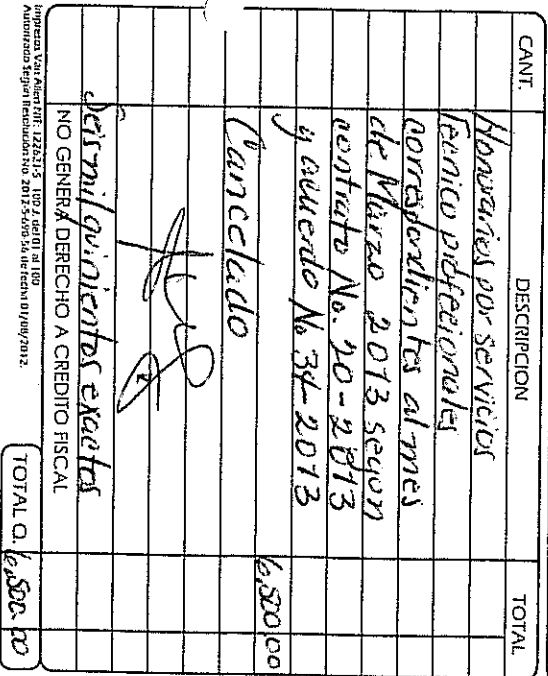 CANT. DESCRIPCION TOTAL
Honorarios por servicios
Tecnico profecionales
correspondientes al mes
de Marzo 2013 segun
contrato No. 20-2013
y acuerdo No 34-2013
6,500.00
Cancelado
Seis mil quinientos exactos
NO GENERA DERECHO A CREDITO FISCAL
TOTAL Q. 6,500.00
Impresos Van Allen NIT: 122621-5 100 J. del 01 al 100
Autorizado Según Resolución No. 2012-5-699-56 de fecha 01/09/2012.